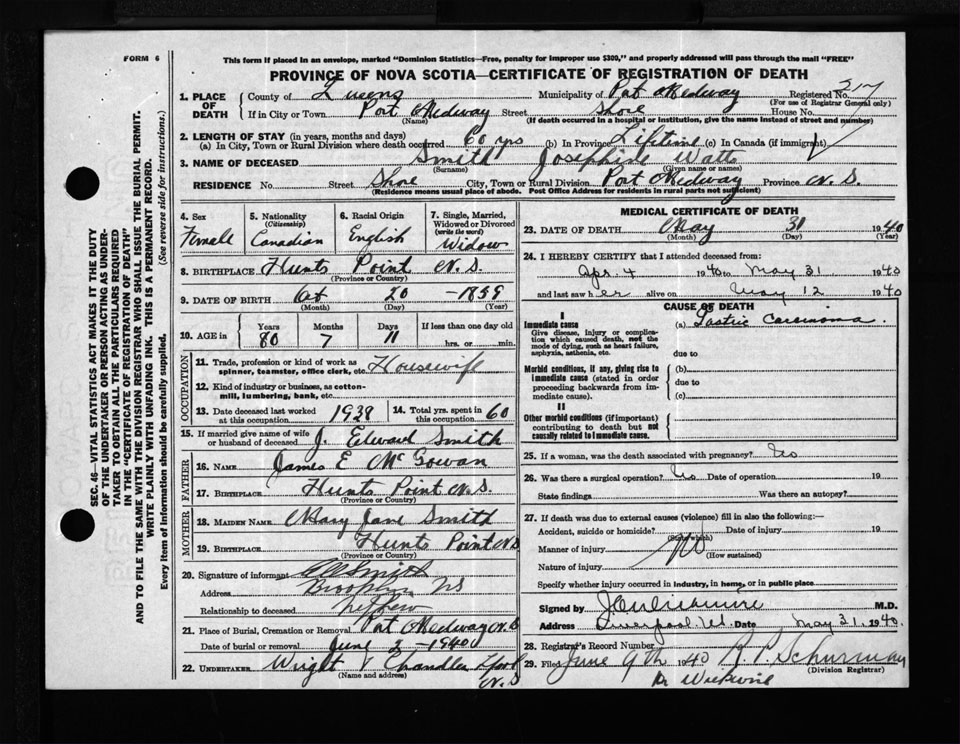 FORM 6
This form if placed in an envelope, marked "Dominion Statistics—Free, penalty for improper use $300," and properly addressed will pass through the mail "FREE"
PROVINCE OF NOVA SCOTIA—CERTIFICATE OF REGISTRATION OF DEATH
1. PLACE OF DEATH County of Queens Municipality of Port Medway Registered No. 217
(For use of Registrar General only)
If in City or Town Port Medway Street Shore House No.
(Name) (If death occurred in a hospital or institution, give the name instead of street and number)
2. LENGTH OF STAY (in years, months and days)
(a) In City, Town or Rural Division where death occurred 60 yrs (b) In Province Lifetime (c) In Canada (if immigrant)
3. NAME OF DECEASED Smith Josephine Watts
(Surname) (Given name or names)
RESIDENCE No. Street Shore City, Town or Rural Division Port Medway Province N.S.
(Residence means usual place of abode. Post Office Address for residents in rural parts not sufficient)
4. Sex Female
5. Nationality (Citizenship) Canadian
6. Racial Origin English
7. Single, Married, Widowed or Divorced (write the word) Widow
8. BIRTHPLACE Hunts Point N.S.
(Province or Country)
9. DATE OF BIRTH Oct 20 -1859
(Month) (Day) (Year)
10. AGE in Years Months Days If less than one day old
80 7 11 hrs. or min.
OCCUPATION
11. Trade, profession or kind of work as spinner, teamster, office clerk, etc. Housewife
12. Kind of industry or business, as cotton-mill, lumbering, bank, etc.
13. Date deceased last worked at this occupation 1938 14. Total yrs. spent in this occupation 60
15. If married give name of wife or husband of deceased J. Edward Smith
FATHER
16. NAME James E McGowan
17. BIRTHPLACE Hunts Point N.S.
(Province or Country)
MOTHER
18. MAIDEN NAME Mary Jane Smith
19. BIRTHPLACE Hunts Point N.S
(Province or Country)
20. Signature of informant Smith
Address NS
Relationship to deceased nephew
21. Place of Burial, Cremation or Removal Port Medway N.S
Date of burial or removal June 2 1940
22. UNDERTAKER Wright Chandler
(Name and address) N.S
MEDICAL CERTIFICATE OF DEATH
23. DATE OF DEATH May 31 1940
(Month) (Day) (Year)
24. I HEREBY CERTIFY that I attended deceased from:
Apr. 4 1940 to May 31 1940
and last saw her alive on May 12 1940
CAUSE OF DEATH
I
Immediate cause (a) Gastric Carcinoma.
Give disease, injury or complication which caused death, not the mode of dying, such as heart failure, asphyxia, asthenia, etc.
due to
Morbid conditions, if any, giving rise to immediate cause (stated in order proceeding backwards from immediate cause)
(b)
due to
(c)
II
Other morbid conditions (if important) contributing to death but not causally related to immediate cause.
25. If a woman, was the death associated with pregnancy? No
26. Was there a surgical operation? No Date of operation 19
State findings Was there an autopsy?
27. If death was due to external causes (violence) fill in also the following:—
Accident, suicide or homicide? Date of injury 19
(State which)
Manner of injury No
(How sustained)
Nature of injury
Specify whether injury occurred in industry, in home, or in public place
Signed by M.D.
Address Liverpool Date May 31, 1940.
28. Registrar's Record Number
29. Filed June 9th 1940 R. P. Schurman
(Division Registrar)
Dr Wickwire
SEC. 46—VITAL STATISTICS ACT MAKES IT THE DUTY
OF THE UNDERTAKER OR PERSON ACTING AS UNDER-
TAKER TO OBTAIN ALL THE PARTICULARS REQUIRED
IN THE "CERTIFICATE OF REGISTRATION OF DEATH"
AND TO FILE THE SAME WITH THE DIVISION REGISTRAR WHO SHALL ISSUE THE BURIAL PERMIT.
WRITE PLAINLY WITH UNFADING INK. THIS IS A PERMANENT RECORD.
Every item of information should be carefully supplied. (See reverse side for instructions.)